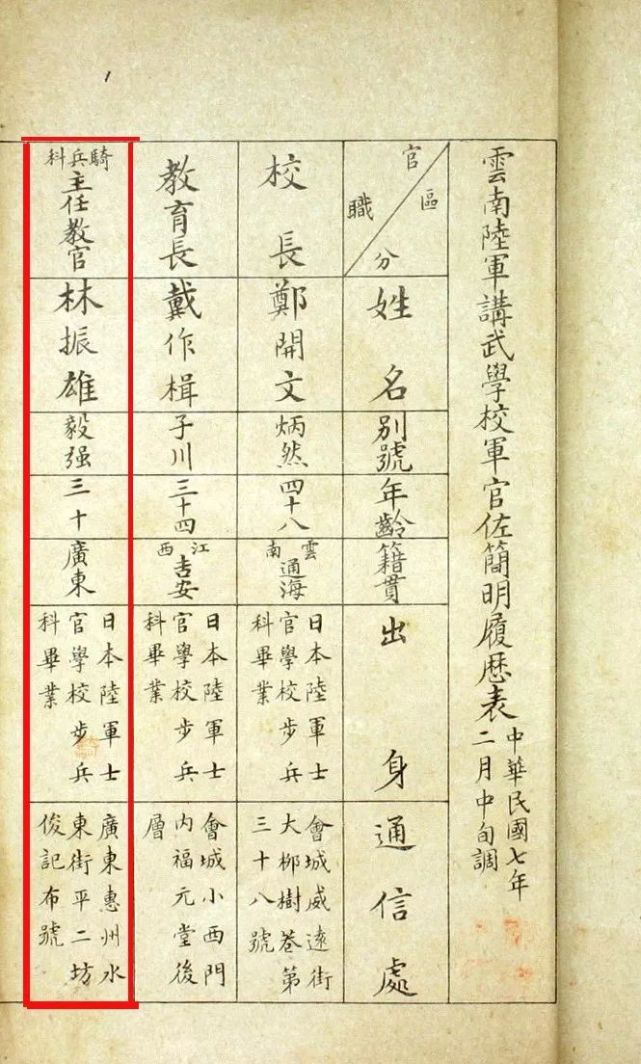 雲南陸軍講武學校軍官佐簡明履歷表
中華民國七年
二月中旬調
官職
區分
姓名
別號
年齡
籍貫
出身
通信處
校長
鄭開文
炳然
四十八
雲南
通海
日本陸軍士
官學校步兵
科畢業
會城威遠街
大柳樹巷第
三十八號
教育長
戴作楫
子川
三十四
江西
吉安
日本陸軍士
官學校步兵
科畢業
會城小西門
內福元堂後
層
騎兵科
主任教官
林振雄
毅强
三十
廣東
日本陸軍士
官學校步兵
科畢業
廣東惠州水
東街平二坊
俊記布號
1